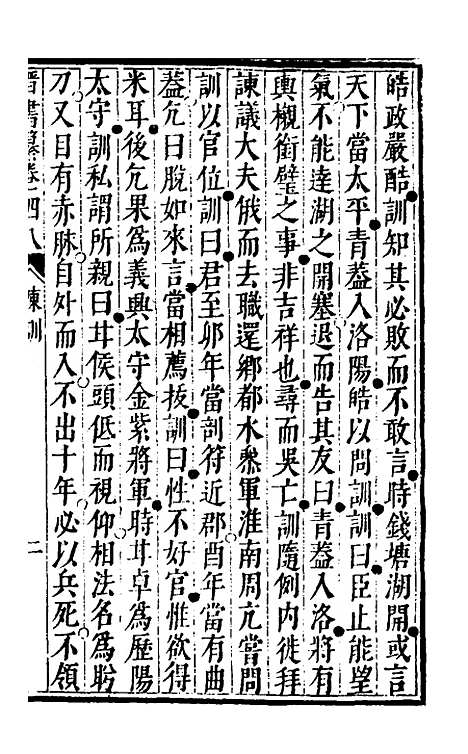 皓政嚴酷訓知其必敗而不敢言時錢塘湖開或言
天下當太平青葢入洛陽皓以問訓訓曰臣止能望
氣不能達湖之開塞退而告其友曰青葢入洛將有
輿櫬銜璧之事非吉祥也尋而吳亡訓隨例内徙拜
諫議大夫俄而去職還鄉都水叅軍淮南周亢嘗問
訓以官位訓曰君至卯年當剖符近郡酉年當有曲
葢亢曰脫如來言當相薦拔訓曰性不好官惟欲得
米耳後亢果爲義興太守金紫將軍時甘卓爲歷陽
太守訓私謂所親曰甘侯頭低而視仰相法名爲盻
刀又目有赤脉自外而入不出十年必以兵死不領
晉書纂卷四八 陳訓 二